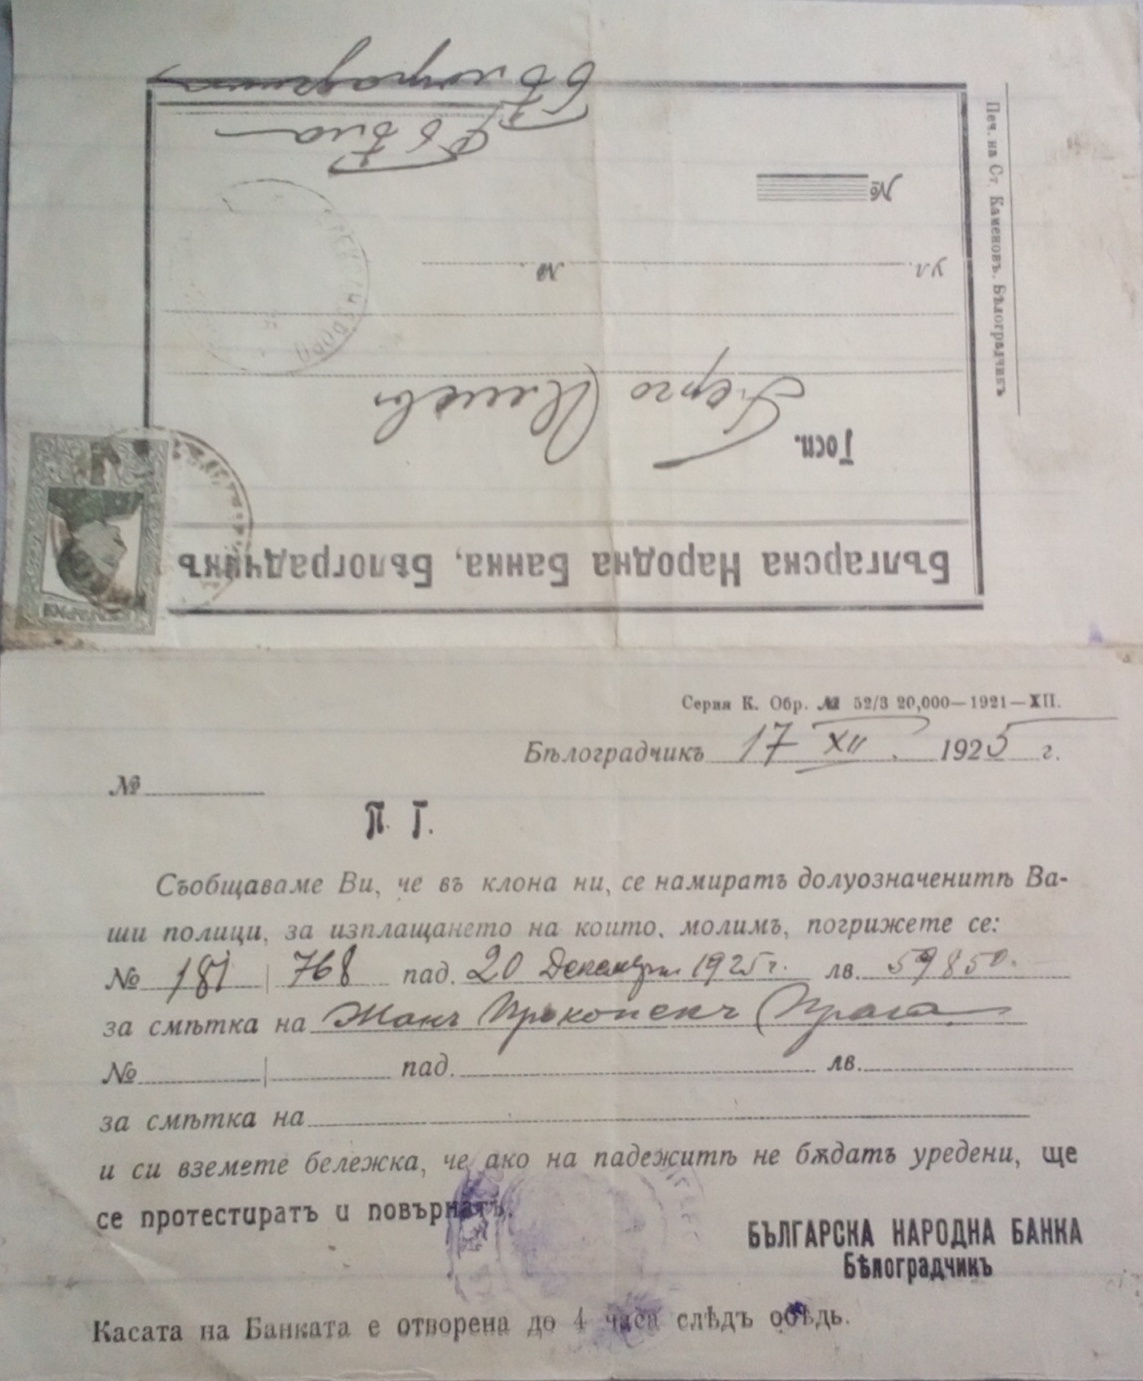 Българска Народна Банка, Бѣлоградчикъ
Госп. Герго Илиевъ
ул. №
№
Бѣла
Печ. на Ст. Каменовъ. Бѣлоградчикъ
Серия К. Обр. № 52/3 20,000—1921—XII.
Бѣлоградчикъ 17 XII 1925 г.
№
П. Г.
Съобщаваме Ви, че въ клона ни, се намиратъ долуозначенитѣ Ва-
ши полици, за изплащането на които, молимъ, погрижете се:
№ 181 | 768 пад. 20 Декември 1925 г. лв. 59850.
за смѣтка на Жанъ Прокопекъ Прага
№ | пад. лв.
за смѣтка на
и си вземете бележка, че ако на падежитѣ не бѫдатъ уредени, ще
се протестиратъ и повърнатъ.
БЪЛГАРСКА НАРОДНА БАНКА
Бѣлоградчикъ
Касата на Банката е отворена до 4 часа слѣдъ обѣдь.